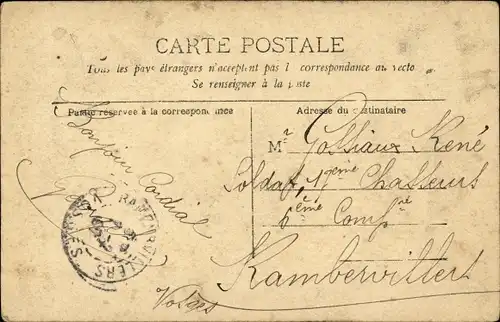 CARTE POSTALE
Tous les pays étrangers n'acceptent pas l correspondance au recto
Se renseigner à la poste
Partie réservée à la correspondance
Adresse du destinataire
Bonjour Cordial
Mr Golliaux René
Soldat, 17ème Chasseurs
6ème Compnie
Rambervillers
Vosges
RAMBERVILLERS
VOSGES